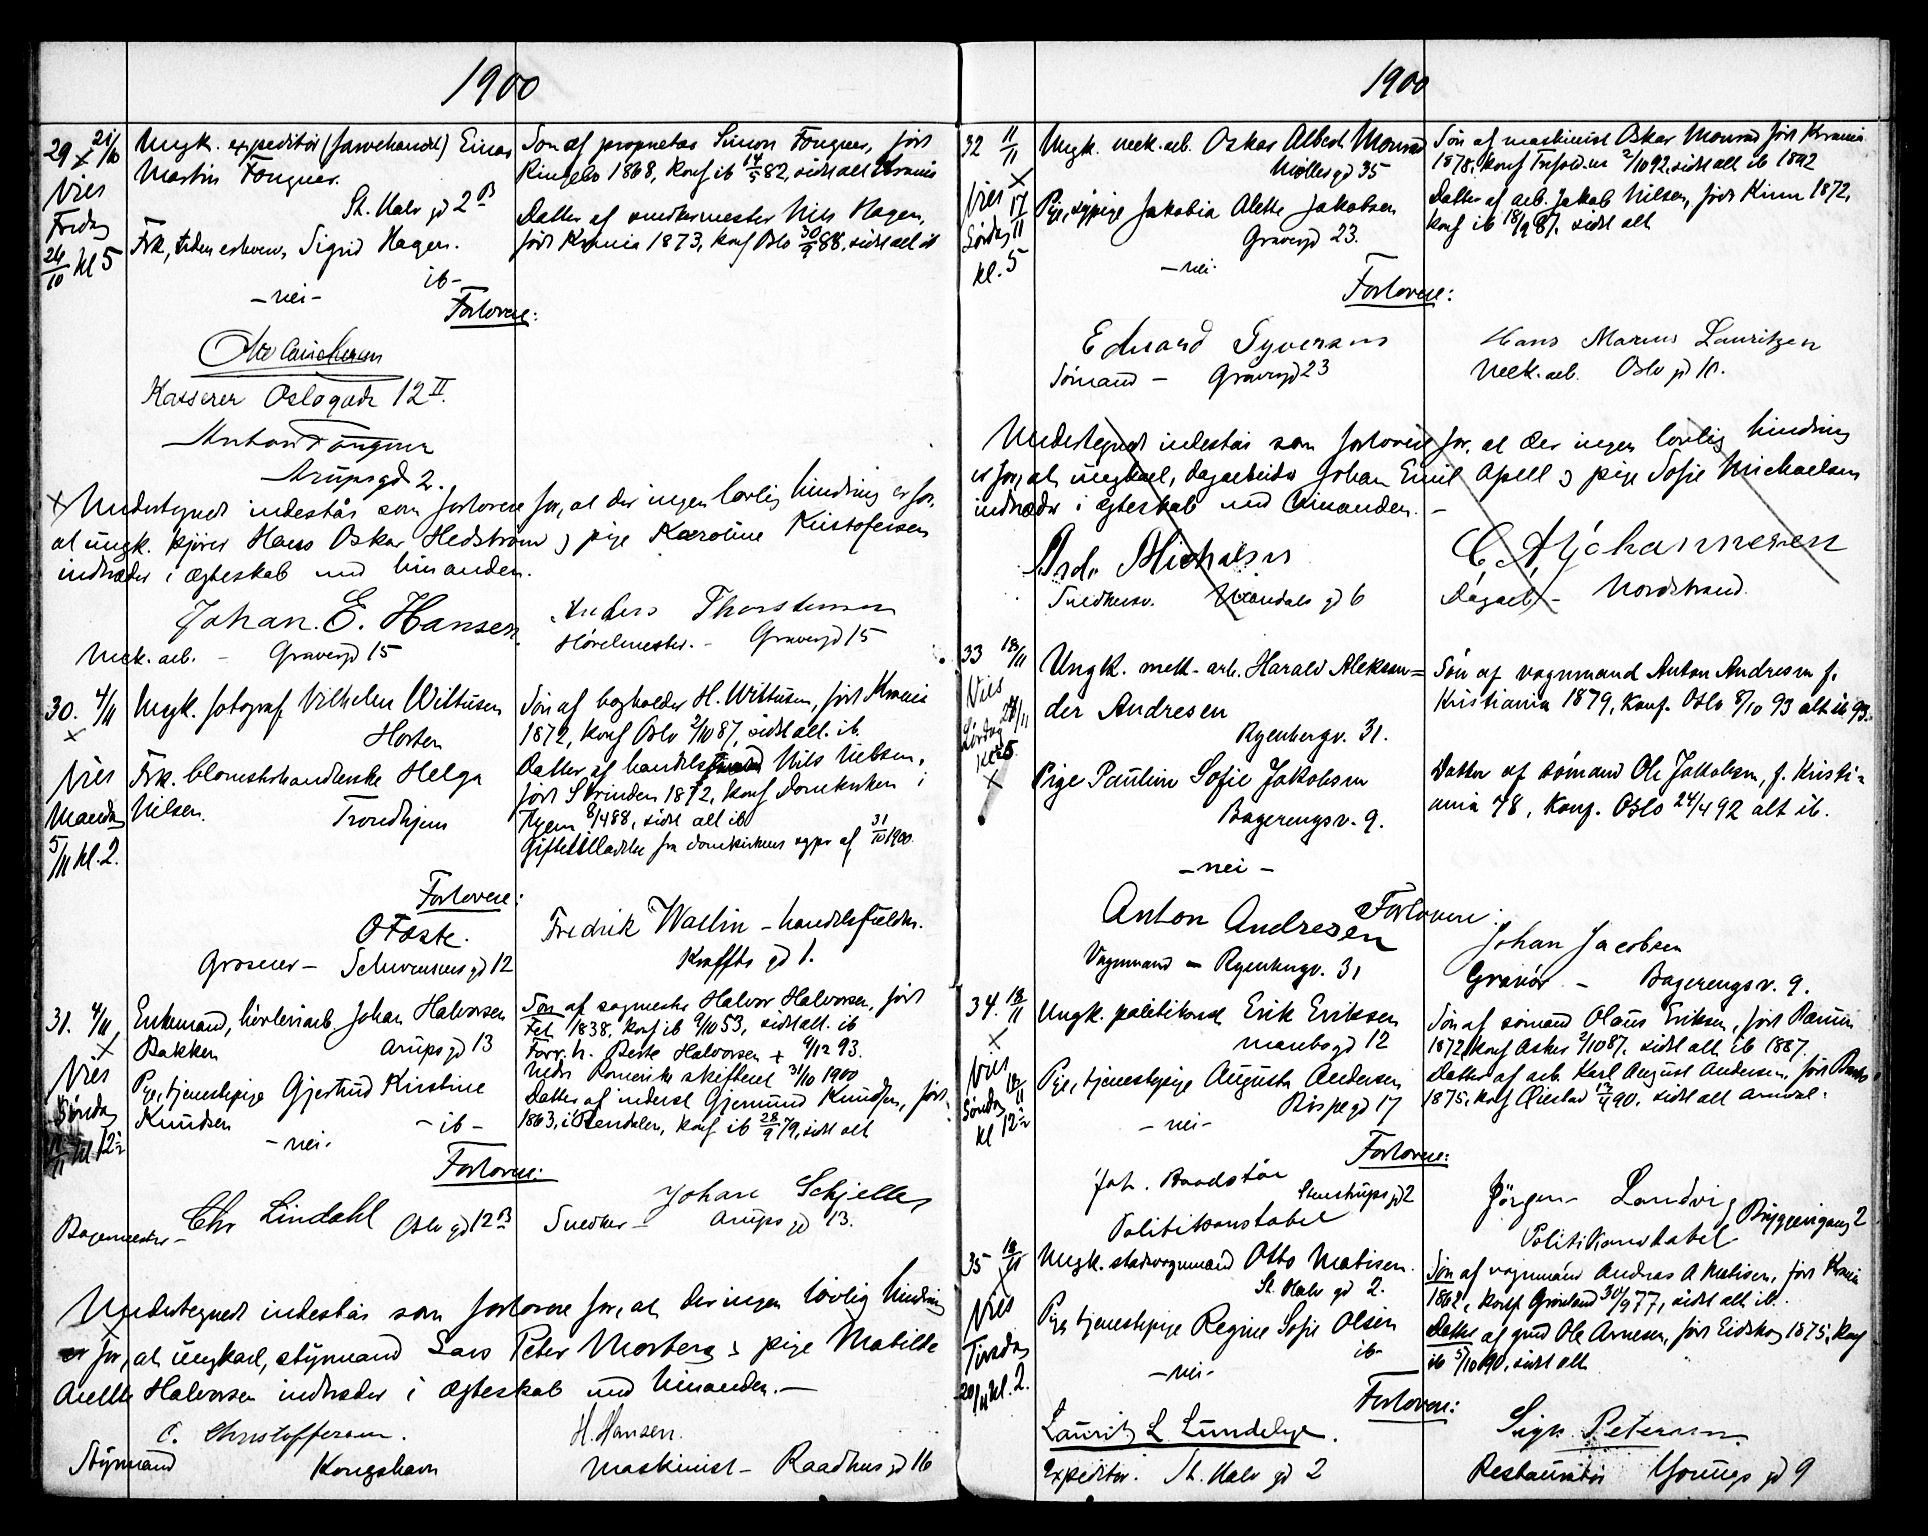 1900
29 21/10 Ungk. expeditör (farvehandel) Einar
Martin Fougner.
St. Halv gd 2 B
Son af proprietær Simon Fougner, født
Ringebo 1868, konf ib 14/5 82, sidst all Krania
Vies
Fredag
24/10 kl 5
Frk, uden erhverv, Sigrid Hagen.
ib-
Datter af snedkermester Nils Hagen,
født Krania 1873, konf Oslo 30/9 88, sidst all ib
-nei-
Forlovere:
Kasserer Oslogade 12 II.
Anton Fougner
Arupsgd 2.
x Undertegnede indestår som forlovere for, at der ingen lovlig hindring er for,
at ungk. kjører Hans Oskar Hedström & pige Karoline Kristofersen
indtræder i ægteskab med hinanden.
Johan. E. Hansen
Mek. arb. - Gravergd 15
Anders Thorstensen
Gravergd 15
30. 4/11 Ungk. fotograf Vilhelm Wittusen
Horten
Søn af bogholder H. Wittusen, født Krania
1872, konf Oslo 2/10 87, sidst all. ib.
Vies
Mandag
5/11 kl. 2.
Frk. blomsterhandlerske Helga
Nilsen.
Trondhjem
Datter af Nils Nielsen,
født Strinden 1872, konf Domkirken i
8/4 88, sidst all ib
fra domkirkens sogn af 31/10 1900.
Forlovere:
O Foste.
Grosserer - Schweensens gd 12
Fredrik Wallin - handelsfuldm.
Kraffts gd 1.
31. 4/11 Enkemand, Johan Halvorsen
Bakken
Arups gd 13
Søn af sagmester Halvor Halvorsen, født
Fet 1838, konf ib 9/10 53, sidst all. ib
Forr. h. Berte Halvorsen + 9/12 93.
Nedre Romerike skifteret 31/10 1900
Vies
Søndag
11/11 kl 12 1/2
Pige, tjenestepige Gjertrud Kirstine
Knudsen
-ib-
Datter af inderst Gjermund Knudsen, født
1863, i Rendalen, konf ib 28/9 79, sidst all
-nei-
Forlovere:
Bagermester - Chr Lindahl Oslo gd 12 B
Johan Schjelle
Snedker - Arups gd 13.
Undertegnede indestår som forlovere for, at der ingen lovlig hindring
er for, at ungkarl, styrmand Lars Peter Morberg & pige Matilde
Anette Halvorsen indtræder i ægteskab med hinanden.-
C. Christoffersen.
Styrmand Kongshavn
H. Hansen.
Maskinist - Raadhus gd 16
1900
32 11/11 Ungk. mek. arb. Oskar Albert Monrad
Møllergd 35
Søn af maskinist Oskar Monrad født Krania
1878, konf Trefold.m 2/10 92, sidst all ib 1892
Vies
17/11
Lørdag
kl. 5
Pige, sypige Jakobia Alette Jakobsen
Gravergd 23.
Datter af arb. Jakob Nilsen, født Kinn 1872,
konf ib 18/9 87. sidst all
-nei-
Forlovere:
Eduard Syversen
Sømand - Gravergd 23
Hans Marius Lauritzen
Mek. arb. Oslo gd 10.
Undertegnede indestår som forlovere for, at der ingen lovlig hindring
er for, at ungkarl, dagarbeider Johan Emil Apell & pige Sofie Michaelsen
indtræder i ægteskab med hinanden. -
Snedkersv. gd 6
C. A. Johannesen
Dagarb - Nordstrand.
33 18/11 Ungk. mek-arb. Harald Aleksan=
der Andresen
Ryenbergv. 31.
Søn af vognmand Anton Andresen f.
Kristiania 1879, konf. Oslo 8/10 93 alt ib 93.
Vies
Lørdag 24/11
kl 5
Pige Pauline Sofie Jakobsen
Bagerengsv. 9.
Datter af sømand Ole Jakobsen, f. Kristi=
ania 78, Konf. Oslo 24/4 92 alt ib.
-nei-
Forlovere:
Anton Andresen
Vognmand - Ryenbergv. 31
Johan Jacobsen
Gravør - Bagerengsv. 9.
34. 18/11 Ungk. politikonst Erik Eriksen
Mandsgd 12
Søn af sømand Olaus Eriksen, født
1872, konf Asker 2/10 87. sidst all ib 1887.
Vies
Søndag 18/11
kl 12 1/2
Pige, tjenestepige Augusta Andersen
Bispegd 17
Datter af arb. Karl August Andersen, født
1875, konf Øiestad 90. sidst all Arendal.
-nei-
Forlovere:
Joh. Baadstøe
Stenstrupsgd 2
Politikonstabel
Jörgen Landvig Bryggerigang 2
Politikonstabel
35 18/11 Ungk. stadsvognmand Otto Matisen.
St. Halv gd 2.
Søn af vognmand Andreas A Matisen, født Krania
1862, konf Grønland 30/9 77, sidst all ib.
Vies
Tirsdag
20/11 kl. 2.
Pige, tjenestepige Regine Sofie Olsen
ib-
Datter af gmd Ole Arnesen, født Eidskog 1875, konf
ib 5/10 90, sidst all
-nei-
Forlovere:
Laurits L Lundebye.
Expeditör. St. Halv gd 2
Sigv. Petersen.
Restauratör Youngs gd 9